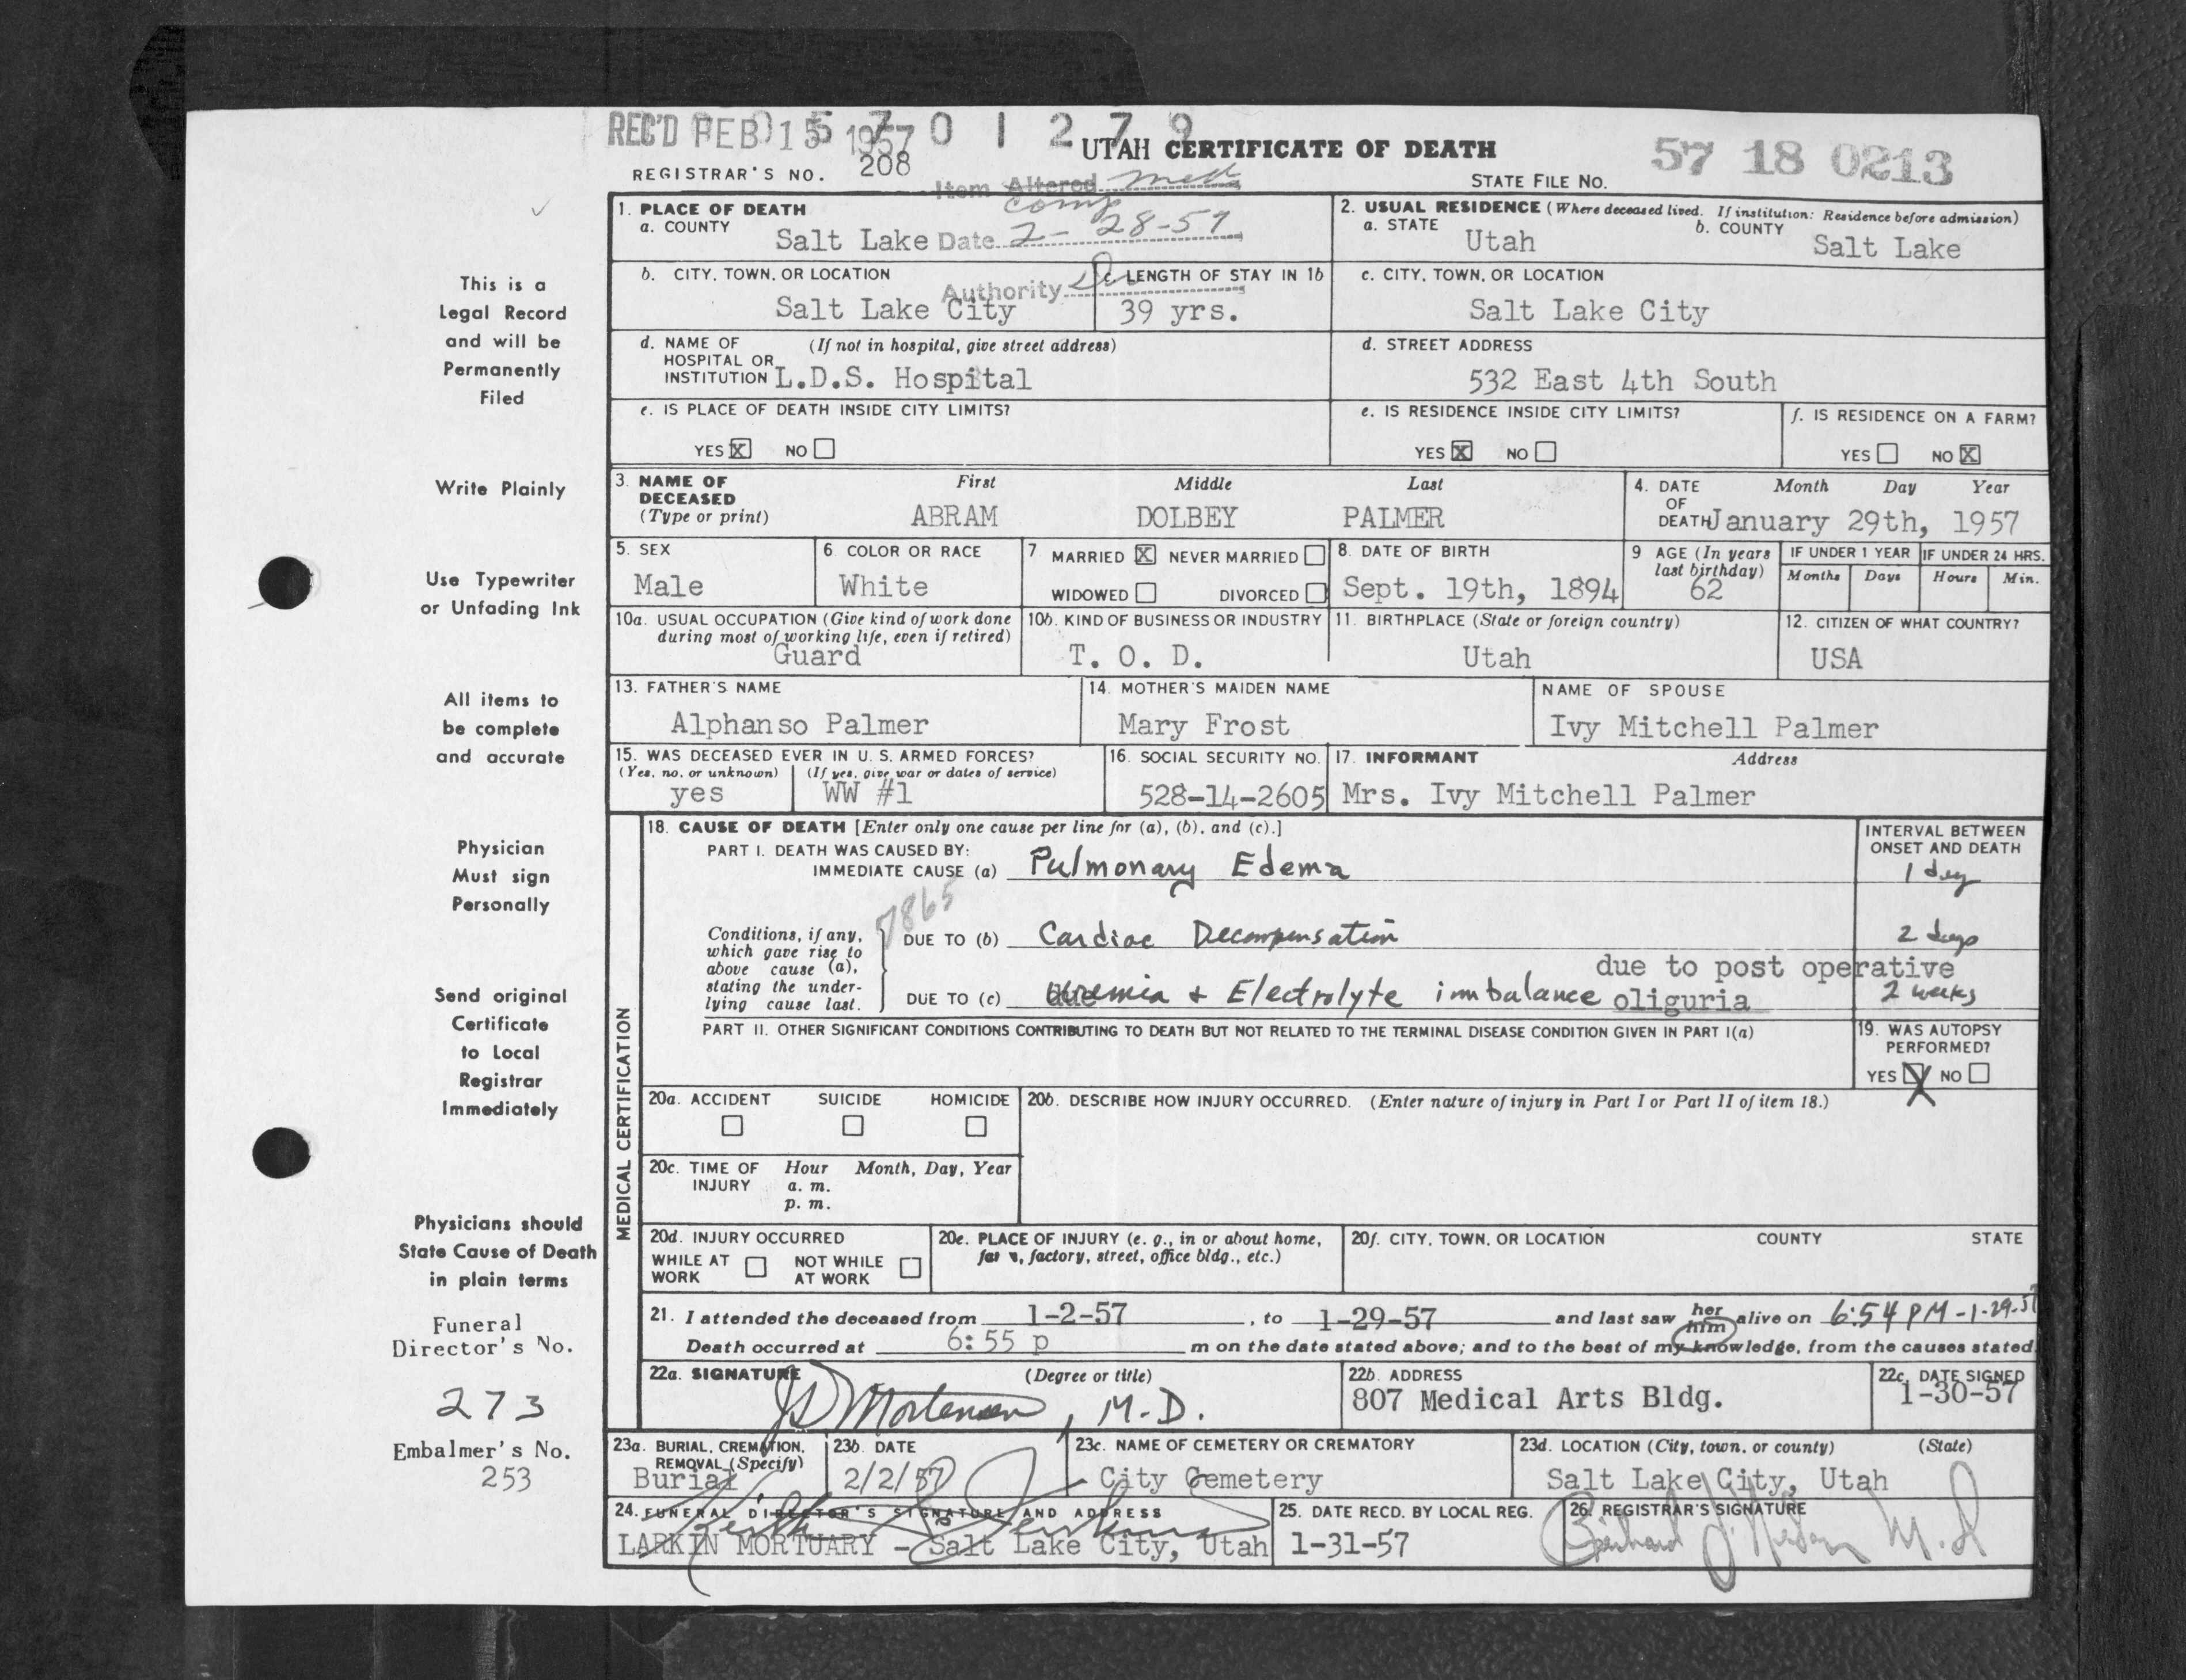 REC'D FEB 15 1957 0 1 2 7 9
UTAH CERTIFICATE OF DEATH
57 18 0213
REGISTRAR'S NO. 208
STATE FILE NO.
Item Altered med
comp
Date 2-28-57
Authority
1. PLACE OF DEATH
a. COUNTY Salt Lake
2. USUAL RESIDENCE (Where deceased lived. If institution: Residence before admission)
a. STATE Utah b. COUNTY Salt Lake
b. CITY, TOWN, OR LOCATION Salt Lake City
c. LENGTH OF STAY IN 1b 39 yrs.
c. CITY, TOWN, OR LOCATION Salt Lake City
d. NAME OF HOSPITAL OR INSTITUTION (If not in hospital, give street address)
L.D.S. Hospital
d. STREET ADDRESS
532 East 4th South
e. IS PLACE OF DEATH INSIDE CITY LIMITS?
YES X NO
e. IS RESIDENCE INSIDE CITY LIMITS?
YES X NO
f. IS RESIDENCE ON A FARM?
YES NO X
3. NAME OF DECEASED (Type or print)
First Middle Last
ABRAM DOLBEY PALMER
4. DATE OF DEATH Month Day Year
January 29th, 1957
5. SEX
Male
6. COLOR OR RACE
White
7 MARRIED X NEVER MARRIED
WIDOWED DIVORCED
8. DATE OF BIRTH
Sept. 19th, 1894
9 AGE (In years last birthday)
62
IF UNDER 1 YEAR IF UNDER 24 HRS.
Months Days Hours Min.
10a. USUAL OCCUPATION (Give kind of work done during most of working life, even if retired)
Guard
10b. KIND OF BUSINESS OR INDUSTRY
T. O. D.
11. BIRTHPLACE (State or foreign country)
Utah
12. CITIZEN OF WHAT COUNTRY?
USA
13. FATHER'S NAME
Alphanso Palmer
14. MOTHER'S MAIDEN NAME
Mary Frost
NAME OF SPOUSE
Ivy Mitchell Palmer
15. WAS DECEASED EVER IN U. S. ARMED FORCES?
(Yes, no, or unknown) (If yes, give war or dates of service)
yes WW #1
16. SOCIAL SECURITY NO.
528-14-2605
17. INFORMANT Address
Mrs. Ivy Mitchell Palmer
MEDICAL CERTIFICATION
18. CAUSE OF DEATH [Enter only one cause per line for (a), (b), and (c).]
INTERVAL BETWEEN ONSET AND DEATH
PART I. DEATH WAS CAUSED BY:
IMMEDIATE CAUSE (a) Pulmonary Edema 1 day
7865
Conditions, if any, which gave rise to above cause (a), stating the underlying cause last.
DUE TO (b) Cardiac Decompensation 2 days
due to post operative
DUE TO (c) Uremia + Electrolyte imbalance oliguria 2 weeks
PART II. OTHER SIGNIFICANT CONDITIONS CONTRIBUTING TO DEATH BUT NOT RELATED TO THE TERMINAL DISEASE CONDITION GIVEN IN PART I(a)
19. WAS AUTOPSY PERFORMED?
YES X NO
20a. ACCIDENT SUICIDE HOMICIDE
20b. DESCRIBE HOW INJURY OCCURRED. (Enter nature of injury in Part I or Part II of item 18.)
20c. TIME OF INJURY Hour Month, Day, Year
a. m.
p. m.
20d. INJURY OCCURRED
WHILE AT WORK NOT WHILE AT WORK
20e. PLACE OF INJURY (e. g., in or about home, farm, factory, street, office bldg., etc.)
20f. CITY, TOWN, OR LOCATION COUNTY STATE
21. I attended the deceased from 1-2-57, to 1-29-57 and last saw her him alive on 6:54 PM - 1-29-57
Death occurred at 6:55 p m on the date stated above; and to the best of my knowledge, from the causes stated.
22a. SIGNATURE (Degree or title)
Mortensen, M.D.
22b. ADDRESS
807 Medical Arts Bldg.
22c. DATE SIGNED
1-30-57
23a. BURIAL, CREMATION, REMOVAL (Specify)
Burial
23b. DATE
2/2/57
23c. NAME OF CEMETERY OR CREMATORY
City Cemetery
23d. LOCATION (City, town, or county) (State)
Salt Lake City, Utah
24. FUNERAL DIRECTOR'S SIGNATURE AND ADDRESS
LARKIN MORTUARY - Salt Lake City, Utah
25. DATE RECD. BY LOCAL REG.
1-31-57
26. REGISTRAR'S SIGNATURE
M.D
This is a
Legal Record
and will be
Permanently
Filed
Write Plainly
Use Typewriter
or Unfading Ink
All items to
be complete
and accurate
Physician
Must sign
Personally
Send original
Certificate
to Local
Registrar
Immediately
Physicians should
State Cause of Death
in plain terms
Funeral
Director's No.
273
Embalmer's No.
253